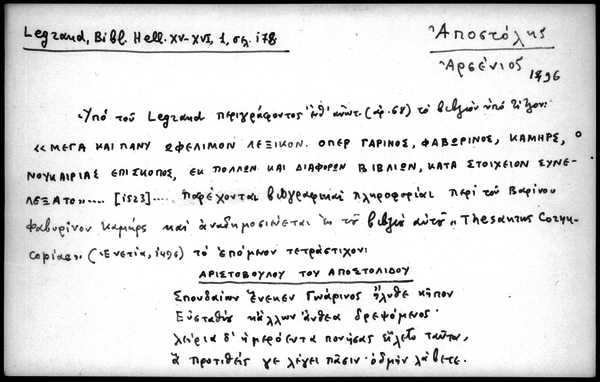 Legrand, Bibl. Hell. XV-XVI, 1, σελ. 178
Ἀποστόλης
Ἀρσένιος 1496
Ὑπὸ τοῦ Legrand περιγράφοντος ἐνθ' ἀνωτ. (ἀρ. 68) τὸ βιβλίον ὑπὸ τίτλον:
«ΜΕΓΑ ΚΑΙ ΠΑΝΥ ΩΦΕΛΙΜΟΝ ΛΕΞΙΚΟΝ. ΟΠΕΡ ΓΑΡΙΝΟΣ, ΦΑΒΩΡΙΝΟΣ, ΚΑΜΗΡΣ, Ο
ΝΟΥΚΑΙΡΙΑΣ ΕΠΙΣΚΟΠΟΣ, ΕΚ ΠΟΛΛΩΝ ΚΑΙ ΔΙΑΦΟΡΩΝ ΒΙΒΛΙΩΝ, ΚΑΤΑ ΣΤΟΙΧΕΙΟΝ ΣΥΝΕ-
ΛΕΞΑΤΟ».... [1523].... παρέχονται βιογραφικαὶ πληροφορίαι περὶ τοῦ Βαρίνου
Φαβωρίνου Καμήρς καὶ ἀναδημοσιεύεται ἐκ τοῦ βιβλίου αὐτοῦ „Thesaurus Cornu-
copiae» (Ἑνετία, 1496) τὸ ἑπόμενον τετράστιχον:
ΑΡΙΣΤΟΒΟΥΛΟΥ ΤΟΥ ΑΠΟΣΤΟΛΙΔΟΥ
Σπουδαίων ἕνεκεν Γωάρινος ἤλυθε κῆπον
Εὐσταθίου κἄλλων ἄνθεα δρεψόμενος·
λείρια δ' ἱμερόεντα πονήσας εἵλετο ταῦτα,
ἃ προτιθεὶς γε λέγει πᾶσιν· ὀδμὴν λάβετε.